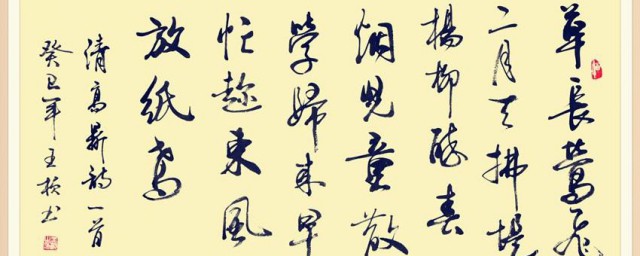 草長鶯飛
二月天拂堤
楊柳醉春
烟兒童散
學歸来早
忙趁東風
放紙鳶
清高鼎詩一首
癸巳年王書